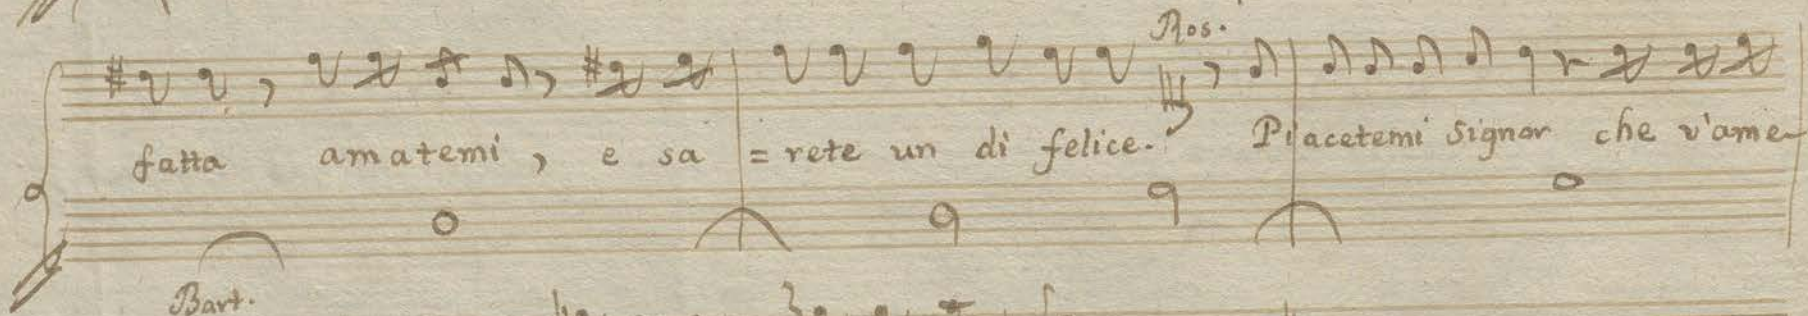 Ros.
fatta amatemi, e sa = rete un di felice. Piacetemi Signor che v'ame
Bart.